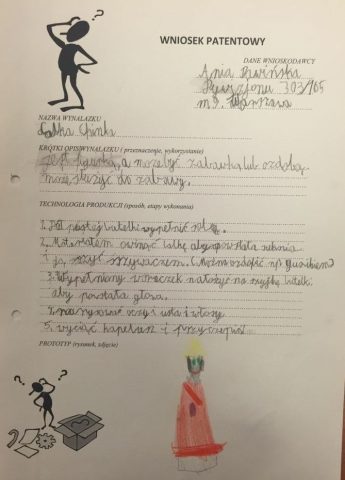 WNIOSEK PATENTOWY
DANE WNIOSKODAWCY
Ania
303/105
m 9. Warszawa
NAZWA WYNALAZKU
Lalka
KRÓTKI OPIS WYNALAZKU ( przeznaczenie, wykorzystanie)
Jest laurką, a może być zabawką lub ozdobą.
może służyć do zabawy.
TECHNOLOGIA PRODUKCJI (sposób, etapy wykonania)
1. Do pustej butelki wypełnić
2. Materiałem owinąć lalkę aby powstała suknia
i ją zszyć zszywaczem. (Można ozdobić np guzikiem)
3. Wypełniony woreczek nałożyć na szyjkę butelki
aby powstała głowa.
4. narysować oczy usta i włosy.
5. wyciąć kapelusz i przyczepić.
PROTOTYP (rysunek, zdjęcie)